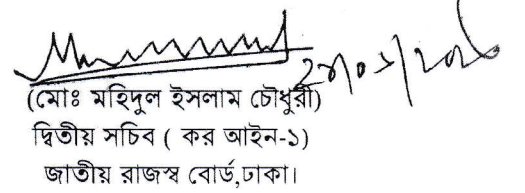 (মোঃ মহিদুল ইসলাম চৌধুরী)
দ্বিতীয় সচিব ( কর আইন-১)
জাতীয় রাজস্ব বোর্ড,ঢাকা।